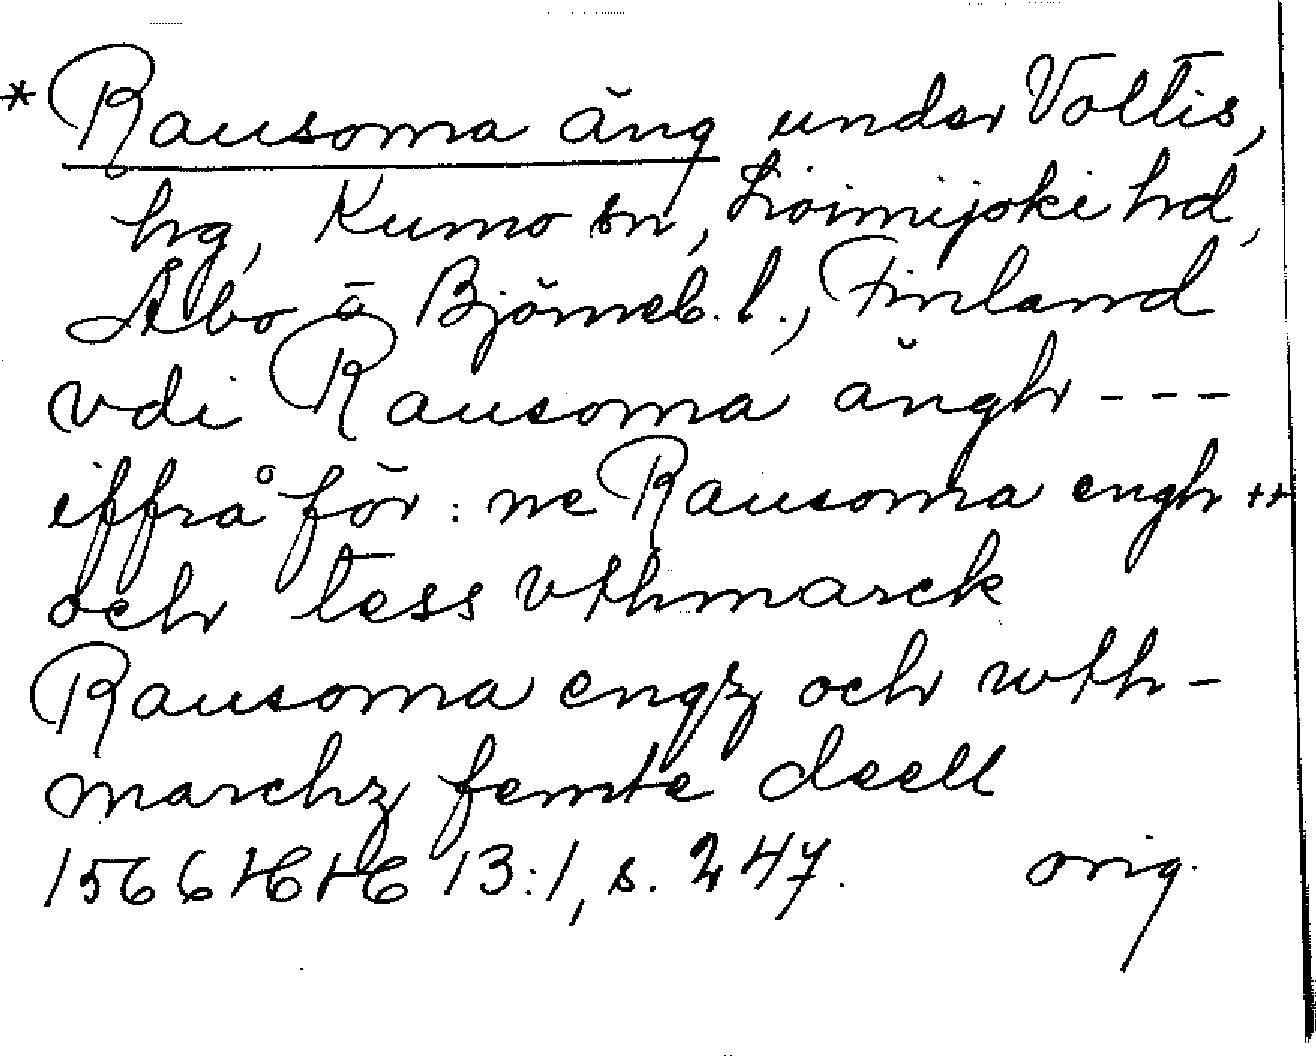 * Rausoma äng under Voltis,
hg, Kumo sn, Loimijoki hd,
Åbo o Björneb. l., Finland
vdi Rausoma ängh ---
iffrå för: ne Rausoma engh
och tess vthmarck
Rausoma engz och wth-
marchz femte deell
1566 HH 13:1, s. 247. orig.